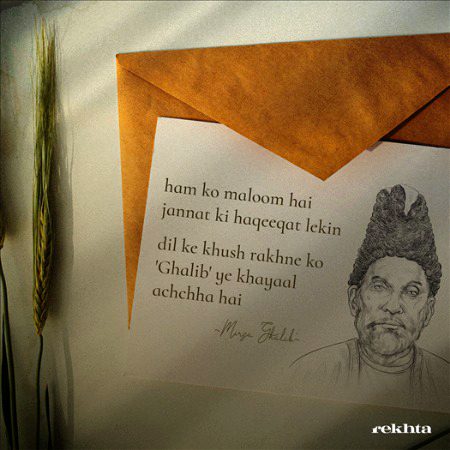 ham ko maloom hai
jannat ki haqeeqat lekin
dil ke khush rakhne ko
'Ghalib' ye khayaal
achchha hai
~Mirza Ghalib~
rekhta